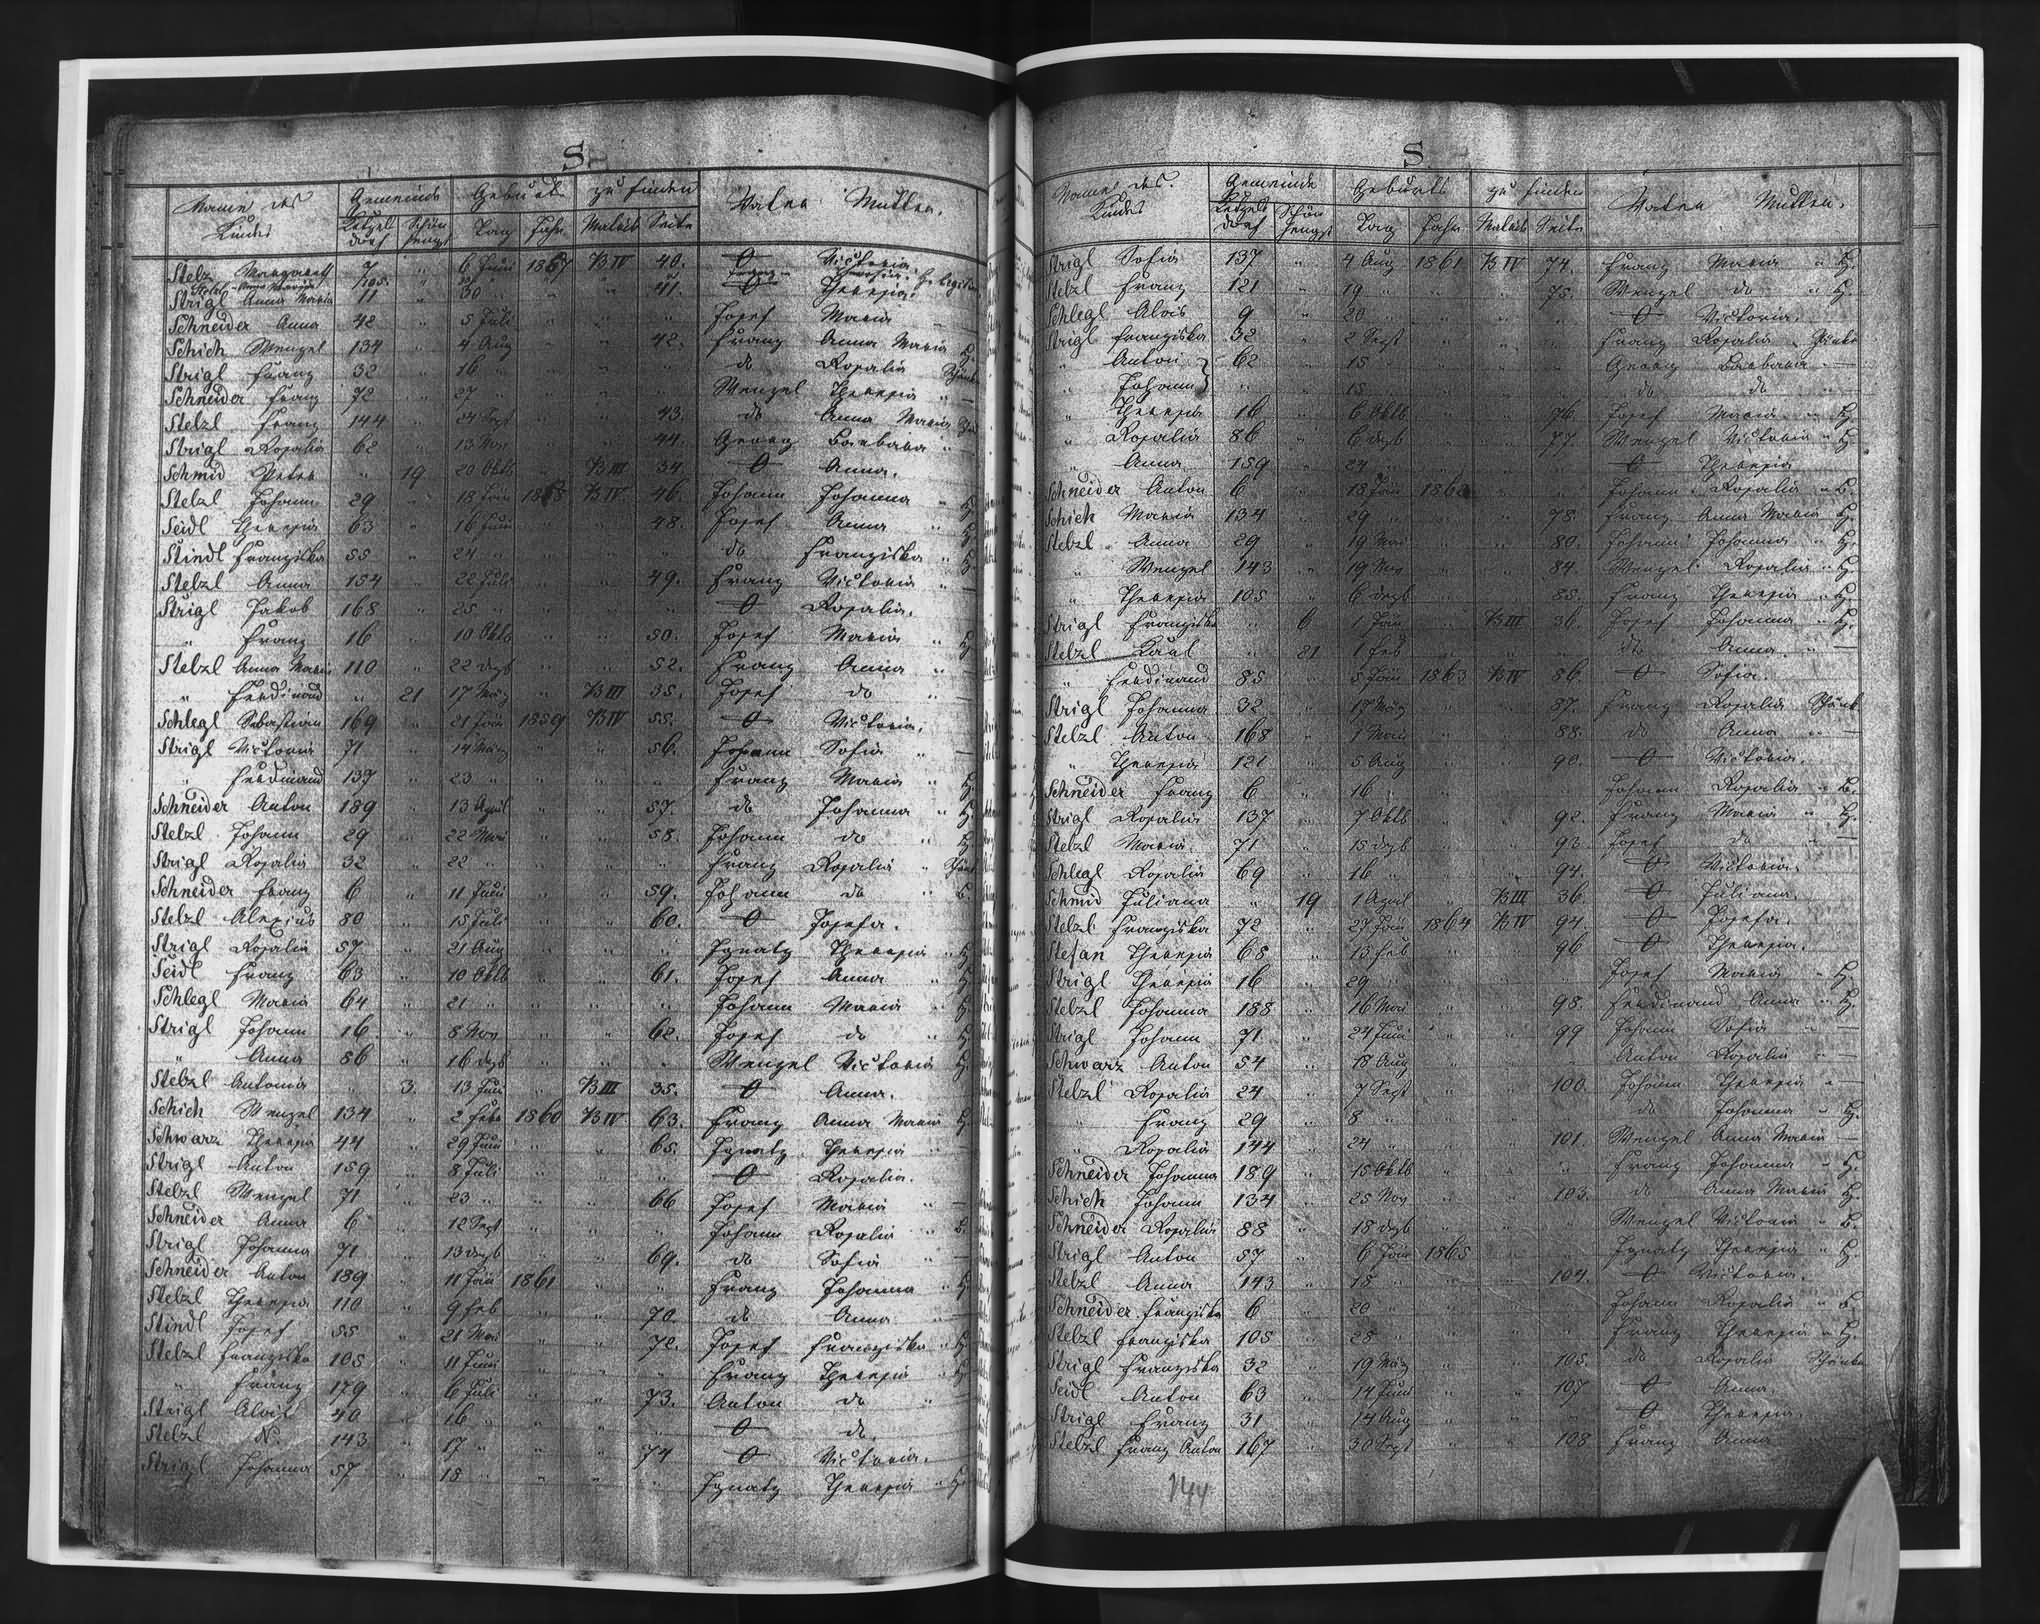 S.
Name des Kindes Gemeinde Geburts zu finden Vater Mutter.
Ketzelsdorf Schönhengst Tag Jahr Matrik Seite
Stelz Margareth 7 " 6 Juni 1857 B IV 40. O Victoria
Stelzl Anna Maria 105. Franz Theresia
Strigl Anna Maria 11 " 30 " " " 41. O Theresia.
Schneider Anna 42 " 5 Juli " " " Josef Maria
Schich Wenzel 134 " 4 Aug " " 42. Franz Anna Maria H.
Strigl Franz 32 " 16 " " " " do Rosalia
Schneider Franz 72 " 27 " " " " Wenzel Theresia " —
Stelzl Franz 144 " 24 Sept " " 43. do Anna Maria
Strigl Rosalia 62 " 13 Nov " " 44. Georg Barbara "
Schmid Peter " 19 20 Oktb " B III 34. O Anna.
Stelzl Johann 29 " 18 Jän 1858 B IV 46. Johann Johanna " H
Seidl Theresia 63 " 16 Juni " " 48. Josef Anna " H
Stindl Franziska 55 " 24 " " " " do Franziska " H
Stelzl Anna 154 " 22 Juli " " 49. Franz Victoria "
Strigl Jakob 168 " 25 " " " " O Rosalia.
" Franz 16 " 10 Oktb " " 50. Josef Maria " H
Stelzl Anna Maria 110 " 22 dezb " " 52. Franz Anna "
" Ferdinand " 21 17 März " B III 35. Josef do " —
Schlegl Sebastian 169 " 21 Jän 1859 B IV 55. O Victoria.
Strigl Victoria 71 " 14 März " " 56. Johann Sofia " —
" Ferdinand 137 " 23 " " " " Franz Maria " H.
Schneider Anton 189 " 13 April " " 57. do Johanna " H
Stelzl Johann 29 " 22 Mai " " 58. Johann do " H
Strigl Rosalia 32 " 22 " " " " Franz Rosalia "
Schneider Franz 6 " 11 Juni " " 59. Johann do " B.
Stelzl Alexius 80 " 15 Juli " " 60. O Josefa.
Strigl Rosalia 57 " 21 Aug " " " Ignatz Theresia " H
Seidl Franz 63 " 10 Oktb " " 61. Josef Anna " H
Schlegl Maria 64 " 21 " " " " Johann Maria " H.
Strigl Johann 16 " 8 Nov " " 62. Josef do " H
" Anna 86 " 16 dezb " " " Wenzel Victoria H.
Stelzl Antonia " 3. 13 Juni " B III 35. O Anna.
Schich Wenzel 134 " 2 Feb 1860 B IV 63. Franz Anna Maria H.
Schwarz Theresia 44 " 29 Juni " " 65. Ignatz Theresia "
Strigl Anton 159 " 8 Juli " " " O Rosalia.
Stelzl Wenzel 71 " 23 " " " 66 Josef Maria " —
Schneider Anna 6 " 12 Sept " " " Johann Rosalia " B.
Strigl Johanna 71 " 13 dezb " " 69. do Sofia " —
Schneider Anton 189 " 11 Jän 1861 " " Franz Johanna " H
Stelzl Theresia 110 " 9 Feb " " 70. do Anna "
Stindl Josef 55 " 21 Mai " " 72. Josef Franziska " H
Stelzl Franziska 105 " 11 Juni " " " Franz Theresia " H
" Franz 179 " 6 Juli " " 73. Anton do "
Strigl Alois 40 " 16 " " " " O do.
Stelzl N. 143 " 17 " " " 74 O Victoria.
Strigl Johanna 57 " 18 " " " " Ignatz Theresia " H
S
Name des Kindes Gemeinde Geburts zu finden Vater Mutter.
Ketzelsdorf Schönhengst Tag Jahr Matrik Seite
Strigl Sofia 137 " 4 Aug 1861 B IV 74. Franz Maria " H.
Stelzl Franz 121 " 19 " " " 75. Wenzel do " H.
Schlegl Alois 9 " 20 " " " " O Victoria.
Strigl Franziska 32 " 2 Sept " " " Franz Rosalia "
" Anton 62 " 15 " " " " Georg Barbara " —
" Johann " " 15 " " " " do do " —
" Theresia 16 " 6 Oktb " " 76. Josef Maria " H.
" Rosalia 86 " 6 dezb " " 77. Wenzel Victoria " H
" Anna 159 " 24 " " " " O Theresia
Schneider Anton 6 " 18 Jän 1862 " " Johann Rosalia " B.
Schich Maria 134 " 29 " " " 78. Franz Anna Maria H.
Stelzl Anna 29 " 19 Mai " " 80. Johann Johanna " H.
" Wenzel 143 " 19 Nov " " 84. Wenzel Rosalia " H.
" Theresia 105 " 6 dezb " " 85. Franz Theresia " H.
Strigl Franziska " 6 1 Jän " B III 36. Josef Johanna " H.
Stelzl Karl " 21 1 Feb " " " do Anna " —
" Ferdinand 85 " 5 Jän 1863 B IV 86. O Sofia.
Strigl Johanna 32 " 17 März " " 87. Franz Rosalia
Stelzl Anton 168 " 1 Mai " " 88. do Anna " —
" Theresia 121 " 5 Aug " " 90. O Victoria.
Schneider Franz 6 " 16 " " " " Johann Rosalia " B.
Strigl Rosalia 137 " 7 Oktb " " 92. Franz Maria " H.
Stelzl Maria 71 " 15 dezb " " 93. Josef do " —
Schlegl Rosalia 69 " 16 " " " 94. O Victoria.
Schmid Juliana " 19 1 April " B III 36 O Juliana.
Stelzl Franziska 72 " 27 Jän 1864 B IV 94. O Josefa.
Stefan Theresia 68 " 13 Feb " " 96 O Theresia.
Strigl Theresia 16 " 29 " " " " Josef Maria " H.
Stelzl Johanna 188 " 16 Mai " " 98. Ferdinand Anna " H.
Strigl Johann 71 " 24 Juni " " 99 Johann Sofia " —
Schwarz Anton 54 " 18 Aug " " " Anton Rosalia " —
Stelzl Rosalia 24 " 7 Sept " " 100. Johann Theresia " —
" Franz 29 " 8 " " " " do Johanna " H.
" Rosalia 144 " 24 " " " 101. Wenzel Anna Maria —
Schneider Johanna 189 " 15 Oktb " " " Franz Johanna " H.
Schich Johann 134 " 25 Nov " " 103. do Anna Maria H.
Schneider Rosalia 88 " 18 dezb " " " Wenzel Victoria " B.
Strigl Anton 57 " 6 Jän 1865 " " Ignatz Theresia " H.
Stelzl Anna 143 " 18 " " " 104. O Victoria.
Schneider Franziska 6 " 20 " " " " Johann Rosalia " B.
Stelzl Franziska 105 " 28 " " " " Franz Theresia " H.
Strigl Franziska 32 " 19 März " " 105. do Rosalia
Seidl Anton 63 " 14 Juni " " 107 O Anna
Strigl Franz 31 " 14 Aug " " " O Theresia.
Stelzl Franz Anton 167 " 30 Sept " " 108 Franz Anna
144